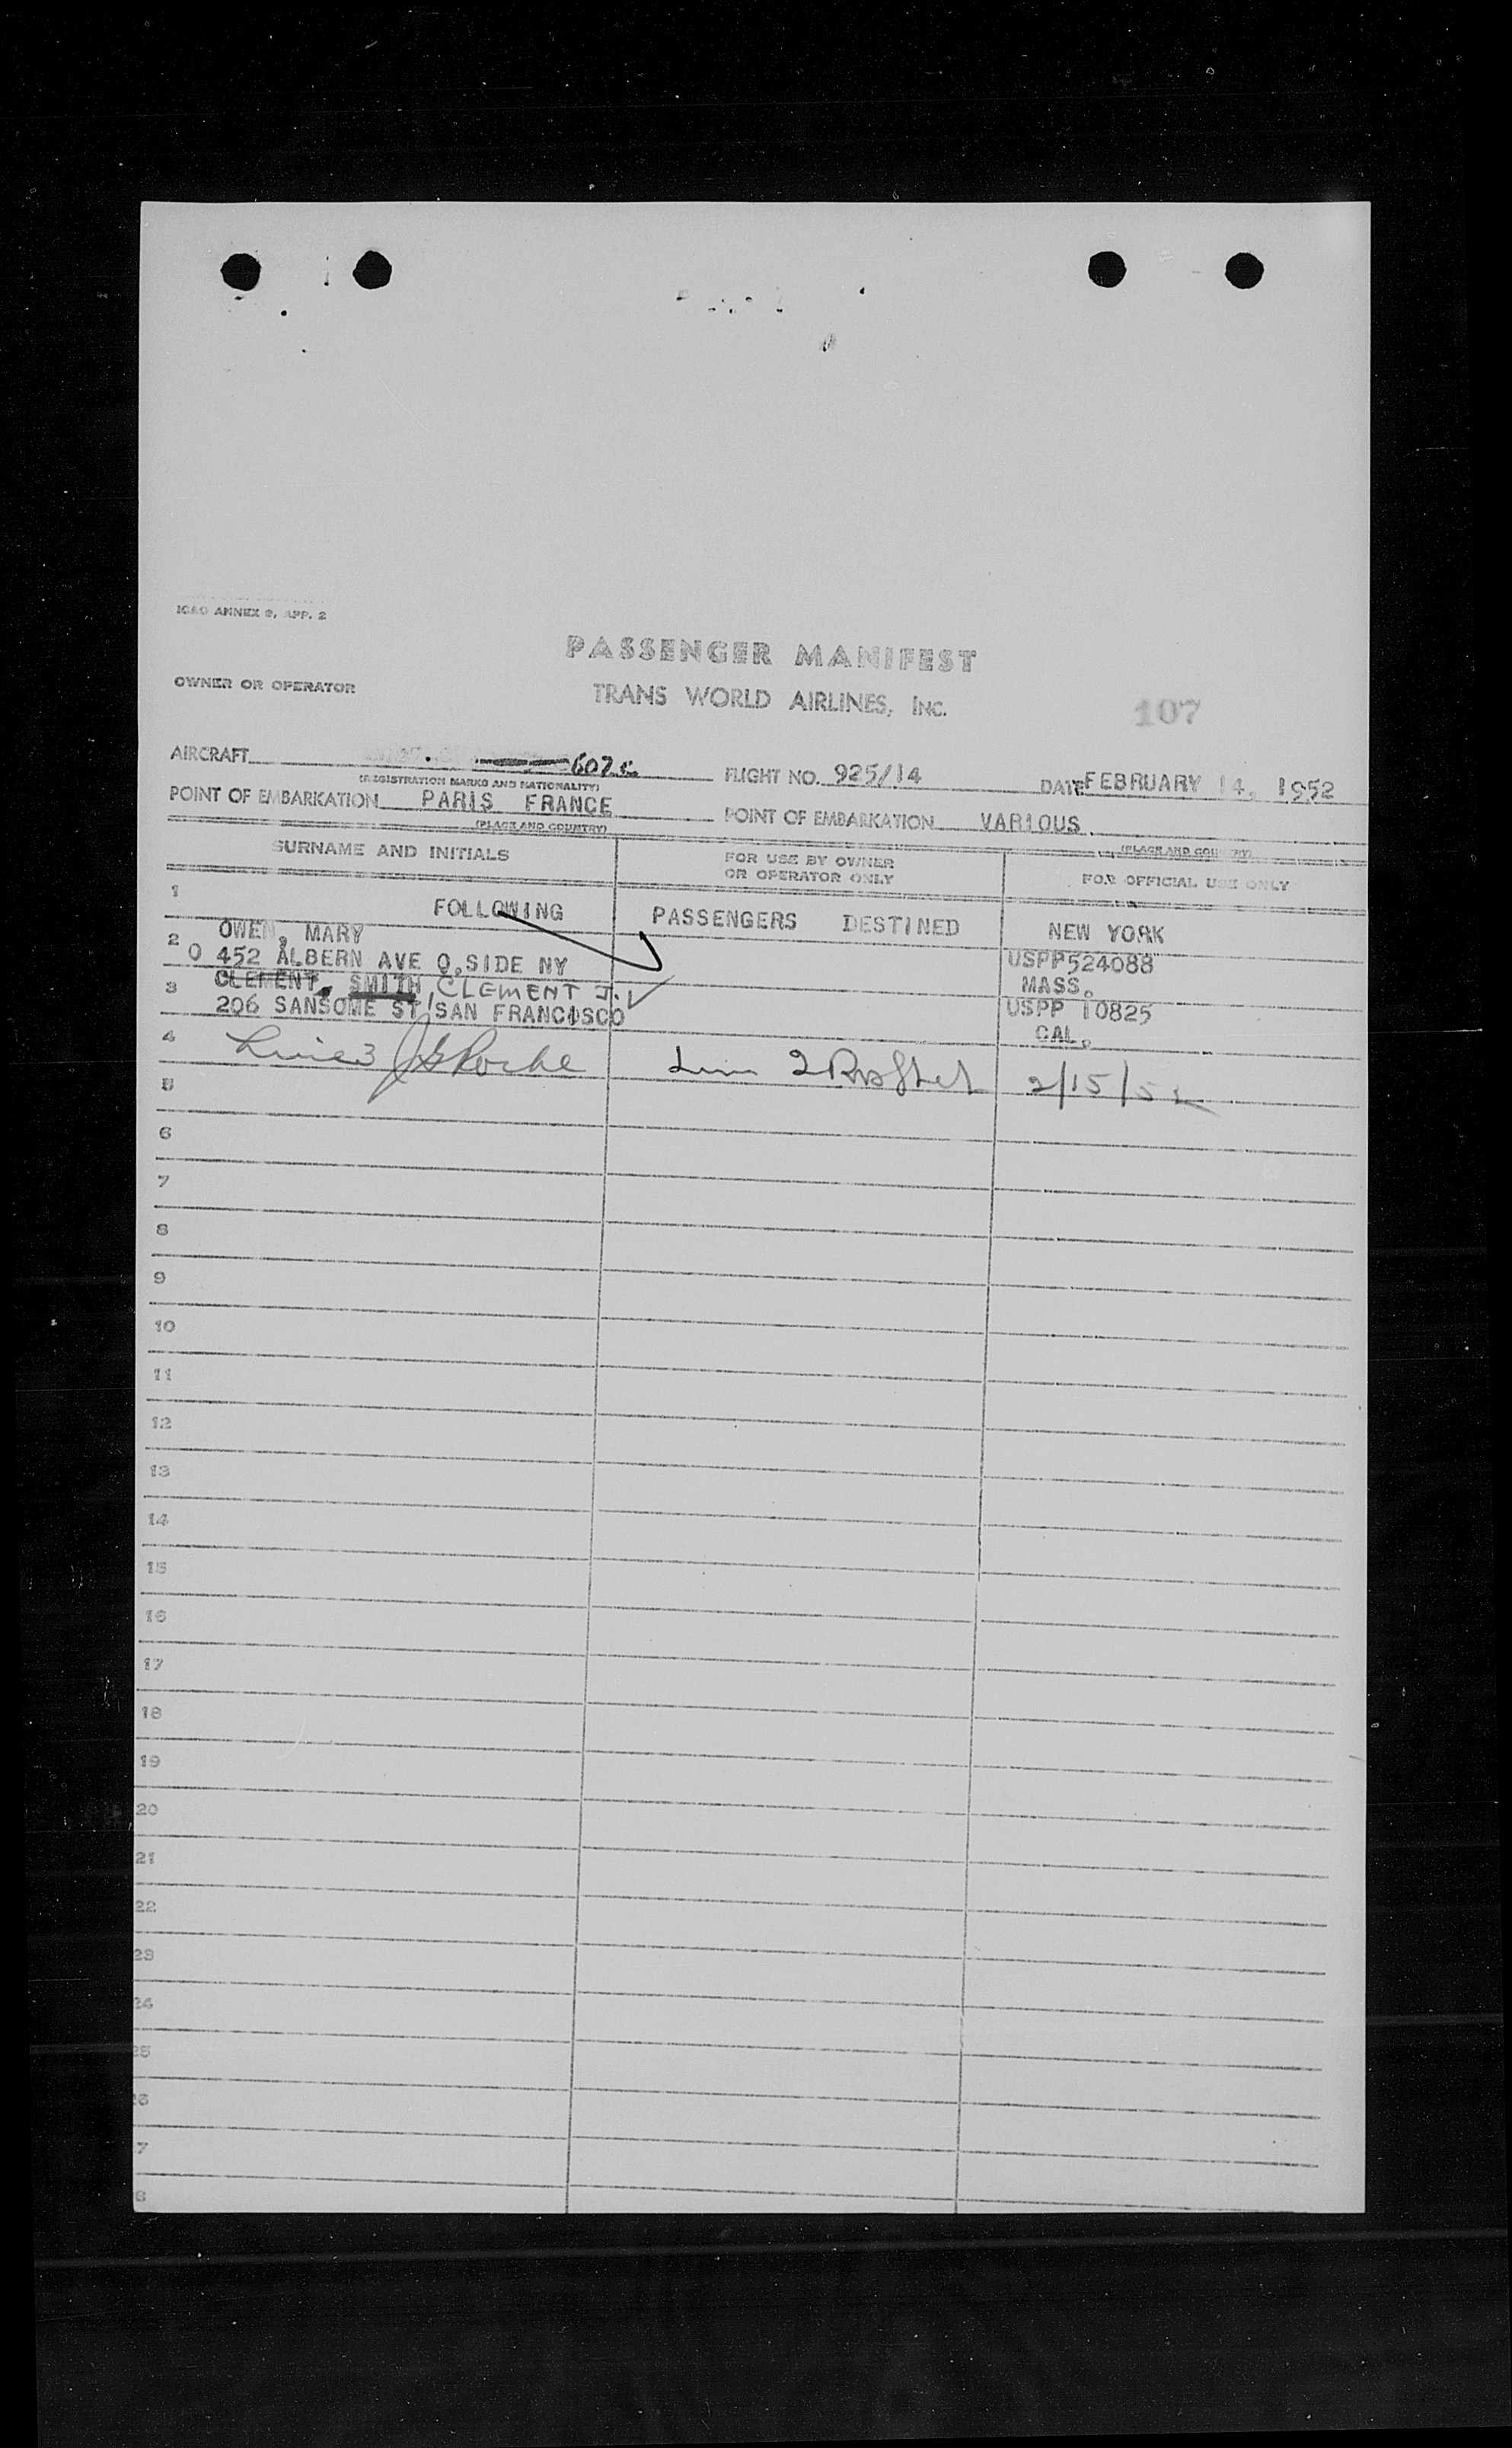 ICAO ANNEX 9, APP. 2
PASSENGER MANIFEST
OWNER OR OPERATOR
TRANS WORLD AIRLINES, INC.
107
AIRCRAFT 607 c FLIGHT NO. 925/14 DATE FEBRUARY 14, 1952
(REGISTRATION MARKS AND NATIONALITY)
POINT OF EMBARKATION PARIS FRANCE POINT OF EMBARKATION VARIOUS
(PLACE AND COUNTRY) (PLACE AND COUNTRY)
SURNAME AND INITIALS FOR USE BY OWNER OR OPERATOR ONLY FOR OFFICIAL USE ONLY
1 FOLLOWING PASSENGERS DESTINED NEW YORK
2 OWEN, MARY USPP524088
O 452 ALBERN AVE O.SIDE NY MASS.
3 CLEMENT, SMITH, CLEMENT J. USPP 10825
206 SANSOME ST SAN FRANCISCO CAL.
4 Line 3 J G Roche Line 2 2/15/52
5
6
7
8
9
10
11
12
13
14
15
16
17
18
19
20
21
22
23
24
25
26
7
8